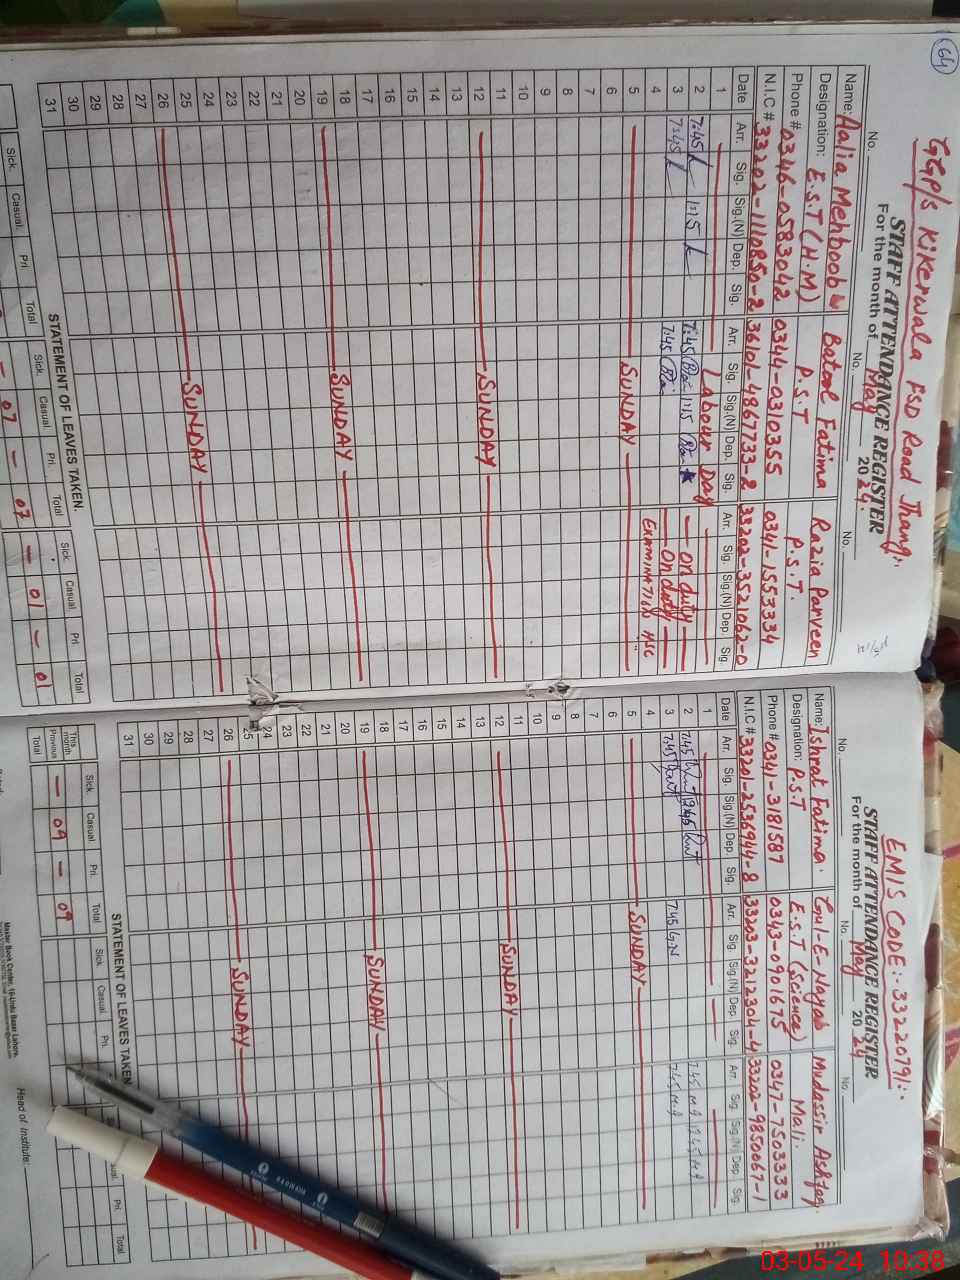 64
GGP/s Kikerwala FSD Road Jhang.
STAFF ATTENDANCE REGISTER
For the month of May 2024.
No. No. No.
Name: Aalia Mehboob Batool Fatima Razia Parveen
Designation: E.S.T (H.M) P.S.T P.S.T.
Phone # 0346-0583042 0344-0310355 0341-1553334
N.I.C # 33202-1110850-2 36101-4867733-2 33202-3521062-0
Date Arr. Sig. Sig.(N) Dep. Sig. Arr. Sig. Sig.(N) Dep. Sig. Arr. Sig. Sig.(N) Dep. Sig.
1 Labour Day
2 7:45 1:15 7:45 1:15 on duty
3 7:45 7:45 on duty
4 EXAMINATION
5 SUNDAY
6
7
8
9
10
11
12 SUNDAY
13
14
15
16
17
18 SUNDAY
19
20
21
22
23
24 SUNDAY
25
26
27
28
29
30
31
STATEMENT OF LEAVES TAKEN.
Sick. Casual. Pri Total Sick. Casual. Pri. Total Sick. Casual. Pri Total
— 07 — 07 — 01 — 01
EMIS CODE:-33220791:-
STAFF ATTENDANCE REGISTER
For the month of May 2024
No. No. No.
Name: Ishrat Fatima. Gul-E-Nayab Mudassir Ashfaq.
Designation: P.S.T E.S.T (Science) Mali.
Phone # 0341-3181587 0343-0901675 0347-7503333
N.I.C # 33201-2536944-8 33203-3212304-4 33202-9850067-1
Date Arr. Sig. Sig.(N) Dep. Sig. Arr. Sig. Sig.(N) Dep. Sig. Arr. Sig. Sig.(N) Dep. Sig.
1
2 7:45 12:45 7:45 M.A 12:45 M.A
3 7:45 7:45 G.N 7:45 M.A
4
5 SUNDAY
6
7
8
9
10
11 SUNDAY
12
13
14
15
16
17
18 SUNDAY
19
20
21
22
23
24
25 SUNDAY
26
27
28
29
30
31
STATEMENT OF LEAVES TAKEN
Sick. Casual. Pri. Total Sick. Casual. Pri. Pri. Total
This month
Previous — 09 — 09
Total
Master Book Center, 16-Urdu Bazar Lahore.
Head of Institute
03-05-24 10:38